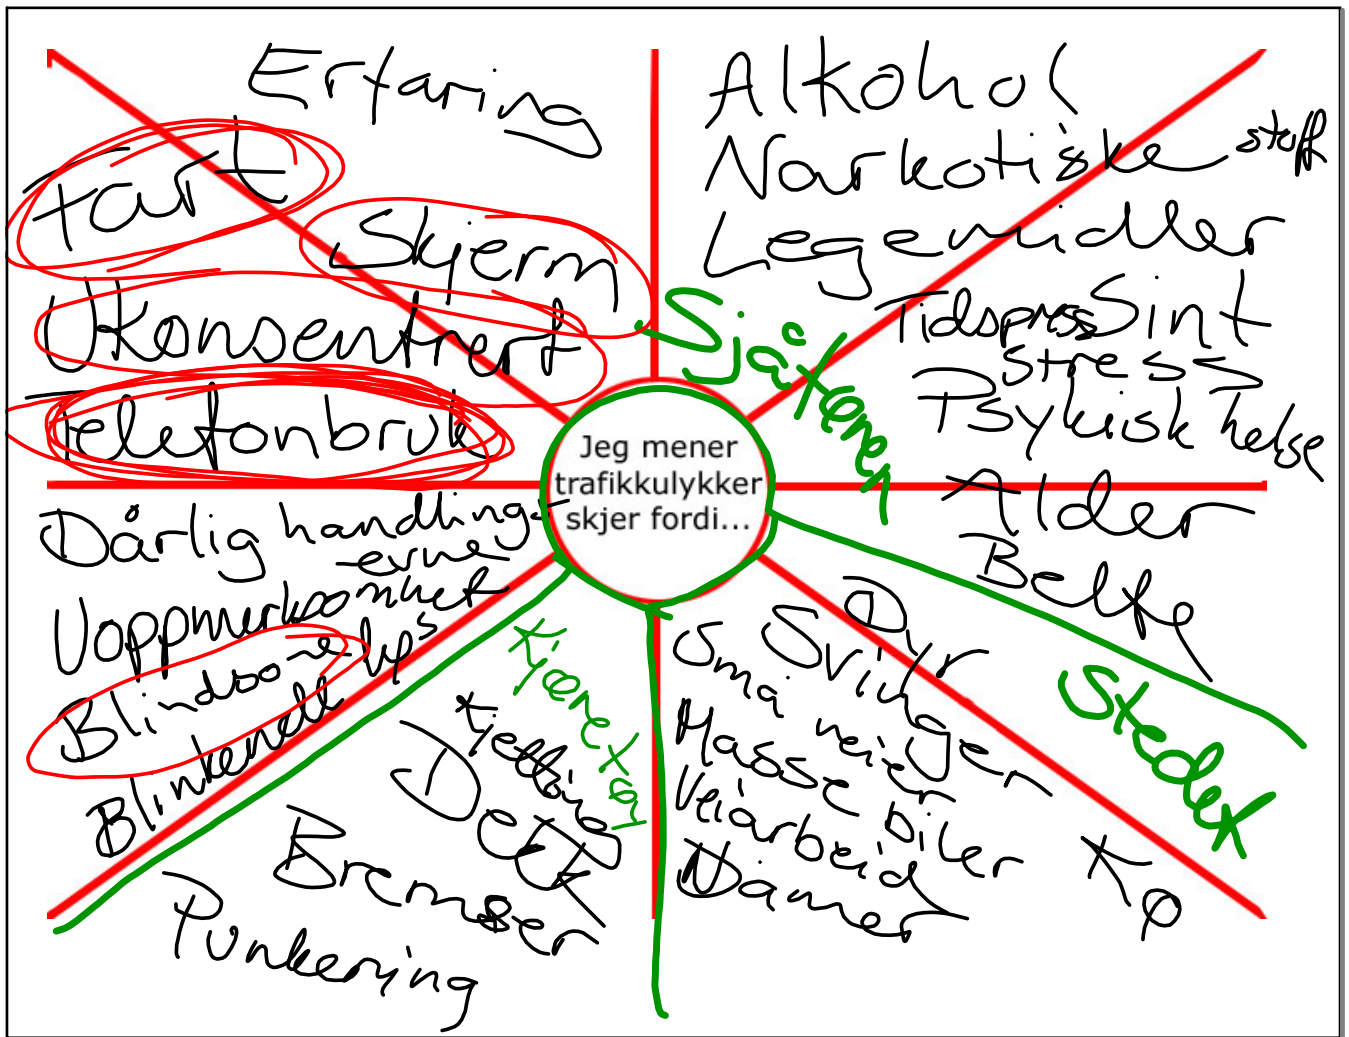 Erfaring
Fart
Skjerm
Ukonsentrert
Telefonbruk
Alkohol
Narkotiske stoff
Legemidler
Tidspress Sint
stress
Psykisk helse
Sjåføren
Jeg mener
trafikkulykker
skjer fordi...
Alder
Belte
Dårlig handlings
-evne
Uoppmerksomhet
Blindsone
Blinkende
lys
Kjøretøy
Kjetting
Dekk
Bremser
Punkering
Dyr
Svinger
Små veier
Masse biler
Veiarbeid
Damer
Stedet
Kø